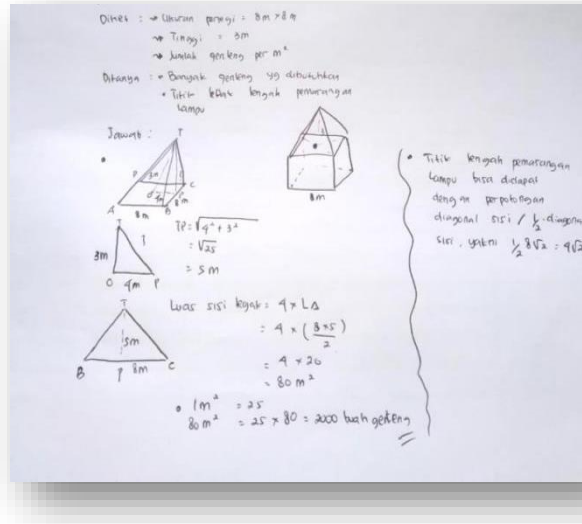 Diket : → Ukuran persegi = 8m × 8m
→ Tinggi = 3m
→ Jumlah genteng per m²
Ditanya : • Banyak genteng yg dibutuhkan
• Titik letak tengah pemasangan
lampu
Jawab :
T
3m
A
B
C
8m
8m
8m
T
3m
O 4m P
TP = √4² + 3²
= √25
= 5 m
T
5m
B P 8m C
Luas sisi tegak = 4 × L∆
= 4 × (8×5/2)
= 4 × 20
= 80 m²
• 1m² = 25
80 m² = 25 × 80 = 2000 buah genteng
• Titik tengah pemasangan
lampu bisa didapat
dengan perpotongan
diagonal sisi / ½ diagonal
sisi, yakni ½ 8√2 = 4√2